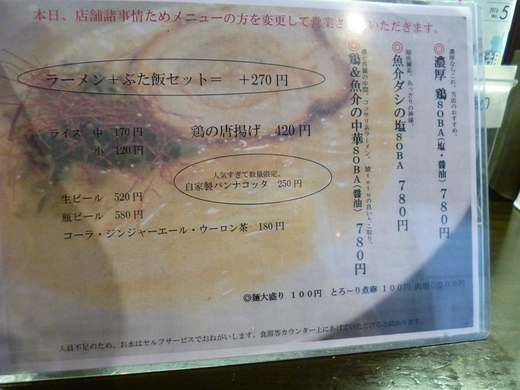 本日、店舗諸事情ためメニューの方を変更して営業させていただきます。
濃厚ならこれ、当店のおすすめ。
◎濃厚 鶏SOBA(塩・醤油) 780円
◎魚介ダシの塩SOBA 780円
◎鶏&魚介の中華SOBA(醤油) 780円
ラーメン+ぶた飯セット= +270円
ライス 中 170円
小 120円
鶏の唐揚げ 420円
人気すぎて数量限定。
自家製パンナコッタ 250円
生ビール 520円
瓶ビール 580円
コーラ・ジンジャーエール・ウーロン茶 180円
◎麺大盛り 100円 とろ〜り煮卵 100円
人員不足のため、お水はセルフサービスでおねがいします。食器等カウンター上にあげていただけると助かります。